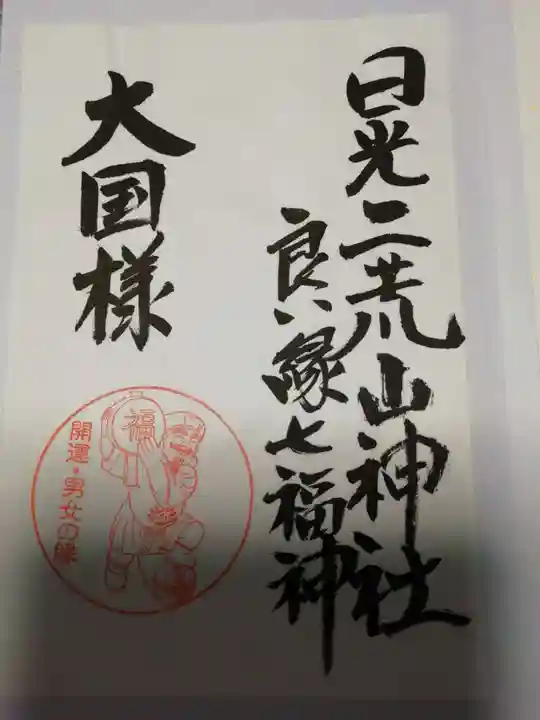 日光二荒山神社
良い縁七福神
大国様
福
開運・男女の縁